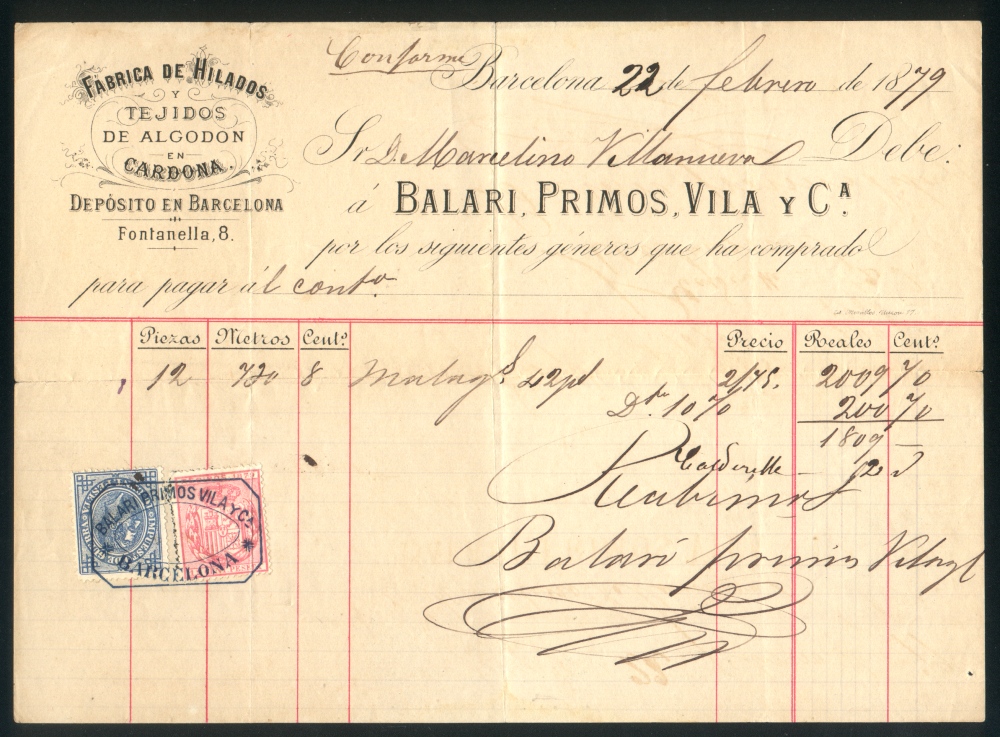 Conforme
FÁBRICA DE HILADOS
Y
TEJIDOS
DE ALGODON
EN
CARDONA.
DEPÓSITO EN BARCELONA
Fontanella, 8.
Barcelona 22 de febrero de 1879
Sr. D. Marcelino Villanueva Debe:
á BALARI, PRIMOS, VILA Y Cª.
por los siguientes géneros que ha comprado
para pagar ál cont.º
Piezas Metros Cents Precio Reales Cents
12 730 8 42 2/75. 2009 70
10 % 200 70
1809 —
Recibimos
Balari primos Vila y C
BALARI PRIMOS VILA Y Cª
BARCELONA